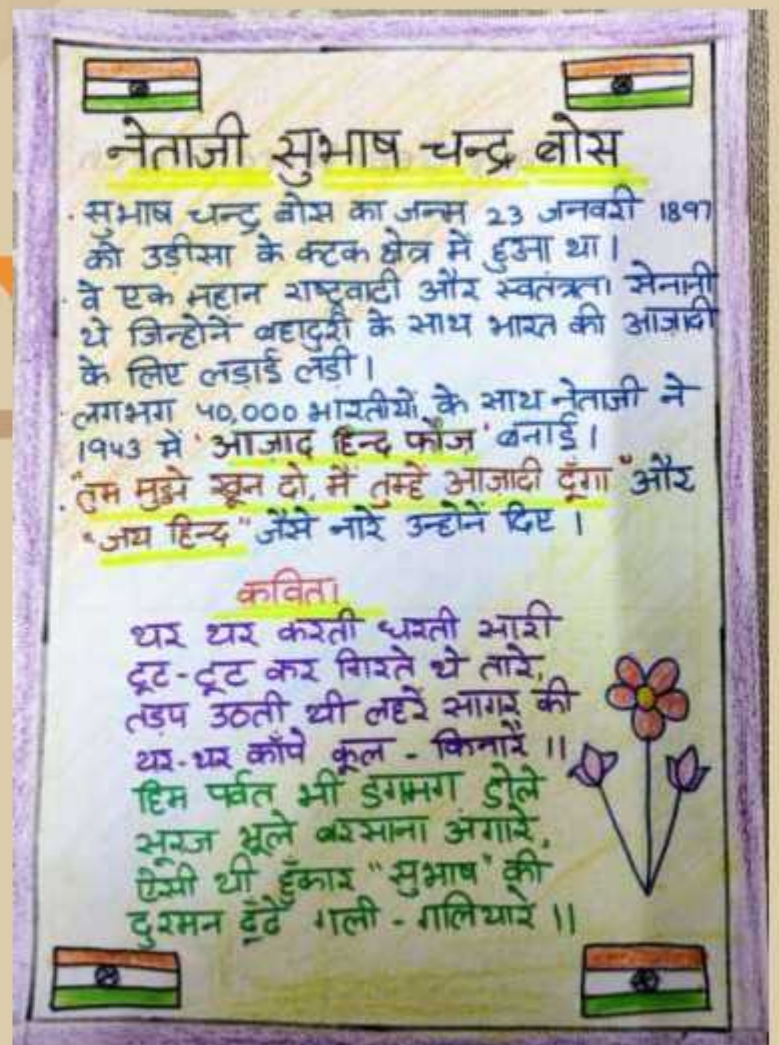 नेताजी सुभाष चन्द्र बोस
· सुभाष चन्द्र बोस का जन्म 23 जनवरी 1897
को उड़ीसा के कटक क्षेत्र में हुआ था।
· वे एक महान राष्ट्रवादी और स्वतंत्रता सेनानी
थे जिन्होनें बहादुरी के साथ भारत की आज़ादी
के लिए लड़ाई लड़ी।
· लगभग 40,000 भारतीयों के साथ नेताजी ने
1943 में 'आजाद हिन्द फौज' बनाई।
· "तुम मुझे खून दो, मैं तुम्हे आजादी दूँगा" और
"जय हिन्द" जैसे नारे उन्होनें दिए।
कविता
थर थर करती धरती सारी
टूट-टूट कर गिरते थे तारे,
तड़प उठती थी लहरें सागर की
थर-थर काँपे कूल - किनारें ॥
हिम पर्वत भी डगमग डोले
सूरज भूले बरसाना अंगारे,
ऐसी थी हुँकार "सुभाष" की
दुश्मन ढूँढें गली - गलियारें ॥